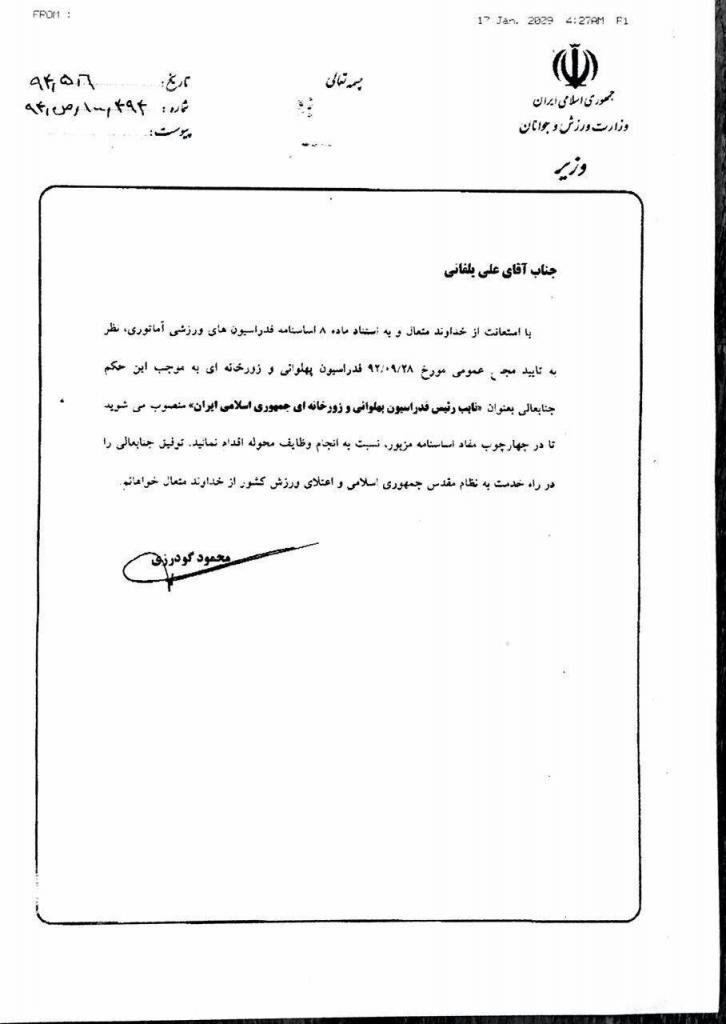 FROM :
17 Jan. 2009 4:27AM P1
جمهوری اسلامی ایران
وزارت ورزش و جوانان
وزیر
بسمه تعالی
تاریخ: ۹۴,۵,۶
شماره: ۹۴,ص,۱۰۰,۴۹۴
پیوست:
جناب آقای علی یلفانی
با استعانت از خداوند متعال و به استناد ماده ۸ اساسنامه فدراسیون های ورزشی آماتوری، نظر
به تایید مجمع عمومی مورخ ۹۲/۰۹/۲۸ فدراسیون پهلوانی و زورخانه ای به موجب این حکم
جنابعالی بعنوان «نایب رئیس فدراسیون پهلوانی و زورخانه ای جمهوری اسلامی ایران» منصوب می شوید
تا در چهارچوب مفاد اساسنامه مزبور، نسبت به انجام وظایف محوله اقدام نمائید. توفیق جنابعالی را
در راه خدمت به نظام مقدس جمهوری اسلامی و اعتلای ورزش کشور از خداوند متعال خواهانم.
محمود گودرزی